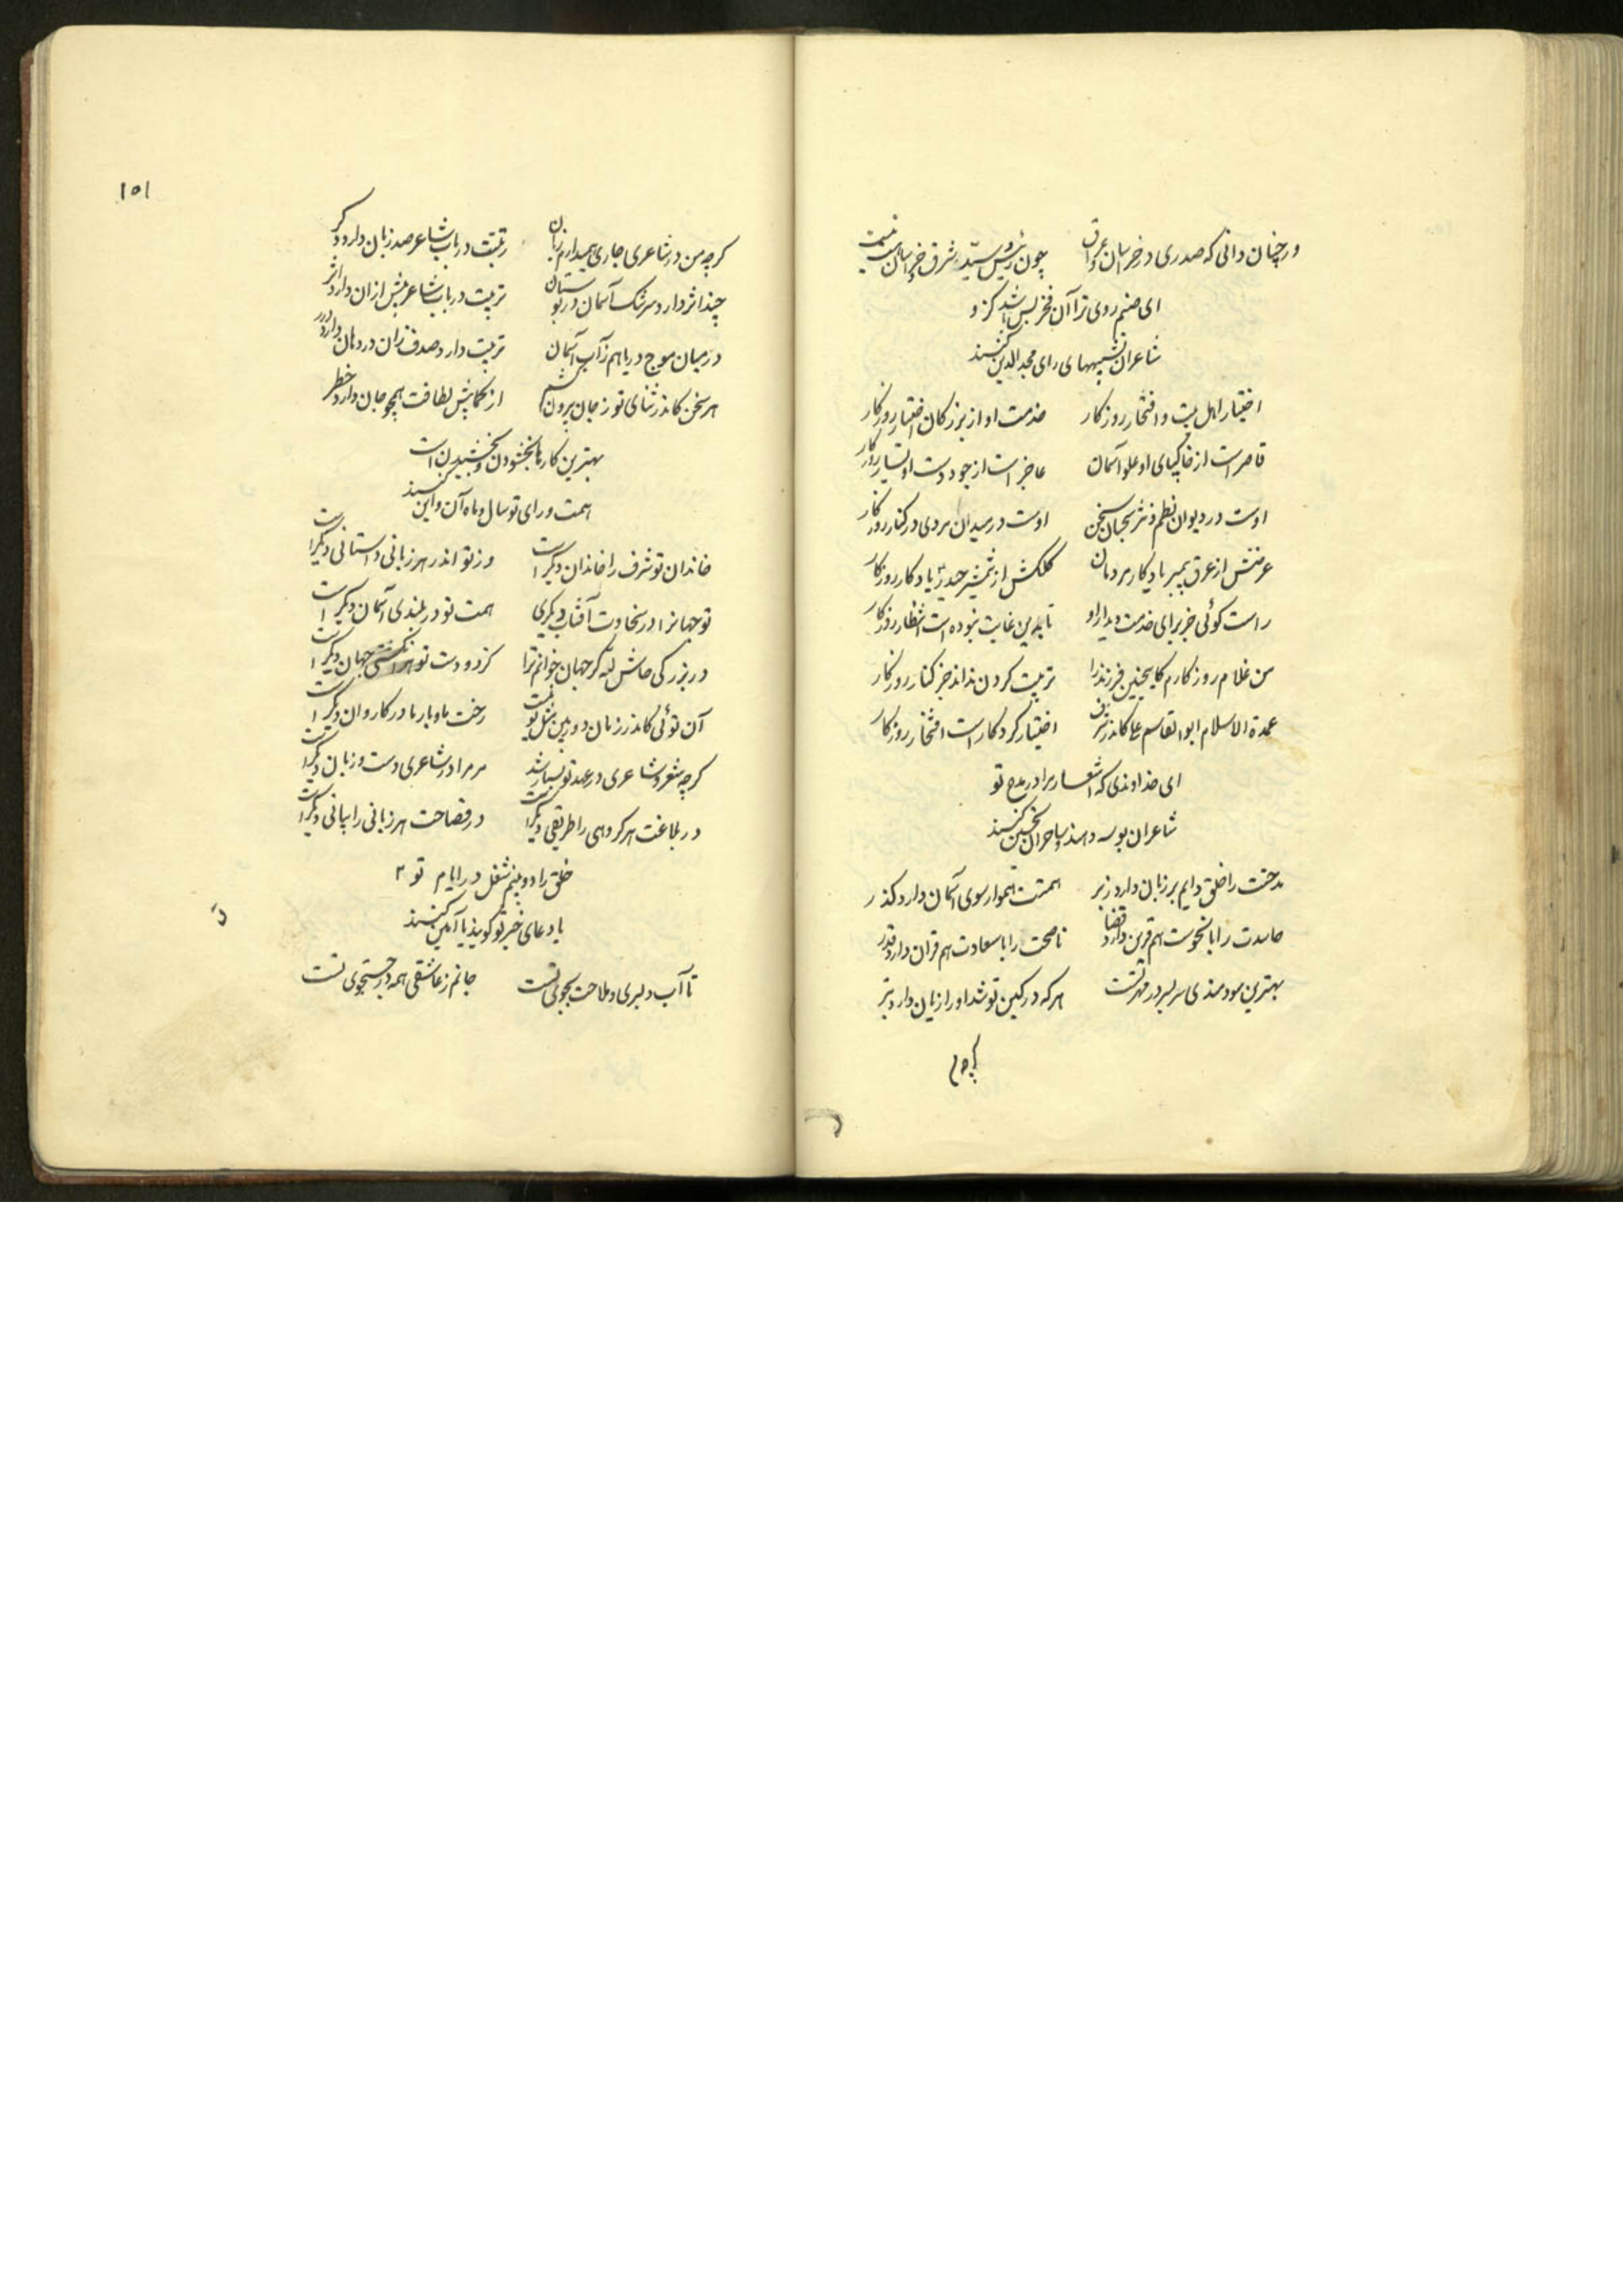 ور چنان دانی که صدری در خراسان و عراق چون رئیس سید شرق خراسان نیست نیست
ای صنم روی ترا آن فخر بس باشد کزو
شاعران تشبیههای رای مجدالدین کنند
اختیار اهل بیت و افتخار روزکار خدمت او از بزرکان اختیار روزکار
قاصر است از خاکپای او علو آسمان عاجز است از جود دست او یسار روزکار
اوست در دیوان نظم و نثر سحبان سخن اوست در میدان مردی در کنار روزکار
عرقش از عرق پیمبر یادکار مردمان کلکش از شمشیر حیدر یادکار روزکار
راست کوئی جز برای خدمت دیدار او تا بدین غایت نبوده است انتظار روزکار
من غلام روزکارم کاینچنین فرزند را تربیت کردن نداند جز کنار روزکار
عمدة الاسلام ابوالقاسم علی کاندر شرف اختیار کردکار است افتخار روزکار
ای خداوندی که اشعار مرا در مدح تو
شاعران بوسه دهند و ساحران تحسین کنند
مدحتت را خلق دایم بر زبان دارد زبر همتت هموار سوی آسمان دارد کذر
حاسدت را با نحوست هم قرین دارد قضا ناصحت را با سعادت هم قران دارد قدر
بهترین سودمندی سربسر در مهر تست هر که در کین تو شد او را زیان دارد بتر
کرچه
۱۵۱
کرچه من در شاعری جاری همیدارم زبان تربیت در باب شاعر صد زبان دارد دکر
چند اثر دارد سرشک آسمان در بوستان تربیت در باب شاعر بیش ازان دارد اثر
در میان موج دریا هم ز آب آسمان تربیت دارد صدف زان در دهان دارد درر
هر سخن کاندر ثنای تو ز جان بیرون کشم از لطافت همچو جان دارد خطر
بهترین کارها بخشودن و بخشیدن است
همت و رای تو سال و ماه آن و این کنند
خاندان تو شرف را خاندان دیکر است وز تو اندر هر زبانی داستانی دیکر است
تو جهانرا در سخاوت آفتاب دیکری همت تو در بلندی آسمان دیکر است
در بزرکی حاش لله کر جهان خوانم ترا کز دو دست تو هر انکشتی جهان دیکر است
آن توئی کاندر زمان دور بین مثل تو نیست رخت ما و بار ما در کاروان دیکر است
کرچه شعر و شاعری در عهد تو بسیار شد مر مرا در شاعری دست و زبان دیکر است
در بلاغت هر کروهی را طریقی دیکر است در فصاحت هر زبانی را بیانی دیکر است
خلق را دو بینم شغل در ایام تو
یا دعای خیر تو کویند یا آمین کنند
تا آب دلبری و ملاحت بجوی تست جانم ز عاشقی همه در جستجوی تست